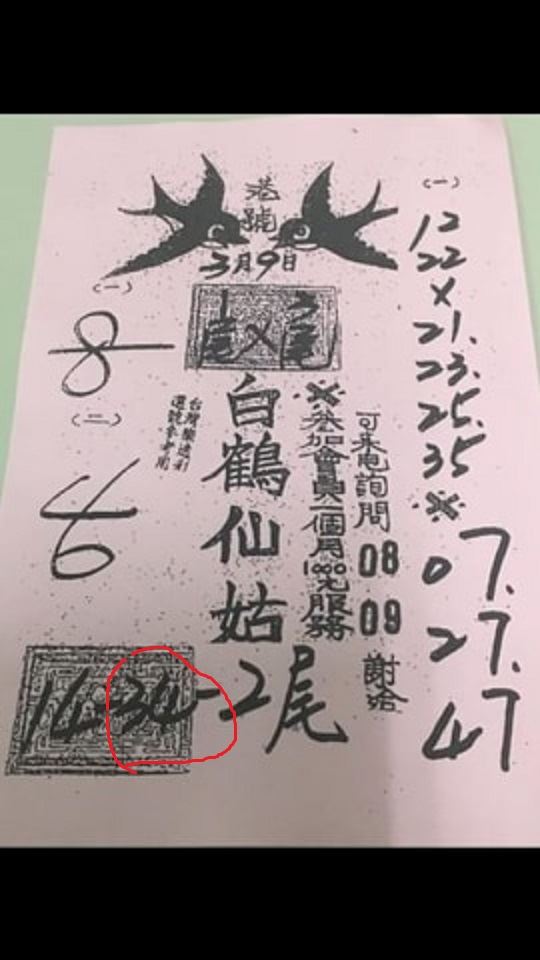 港號
3月9日
1尾X3尾
白鶴仙姑
(一)
8
(二)
※參加會員一個月1000元服務
可來電詢問 08 09 謝洽
(一)
12
22
X
21.
23.
25.
35
※
07.
27.
47
14-34-2尾